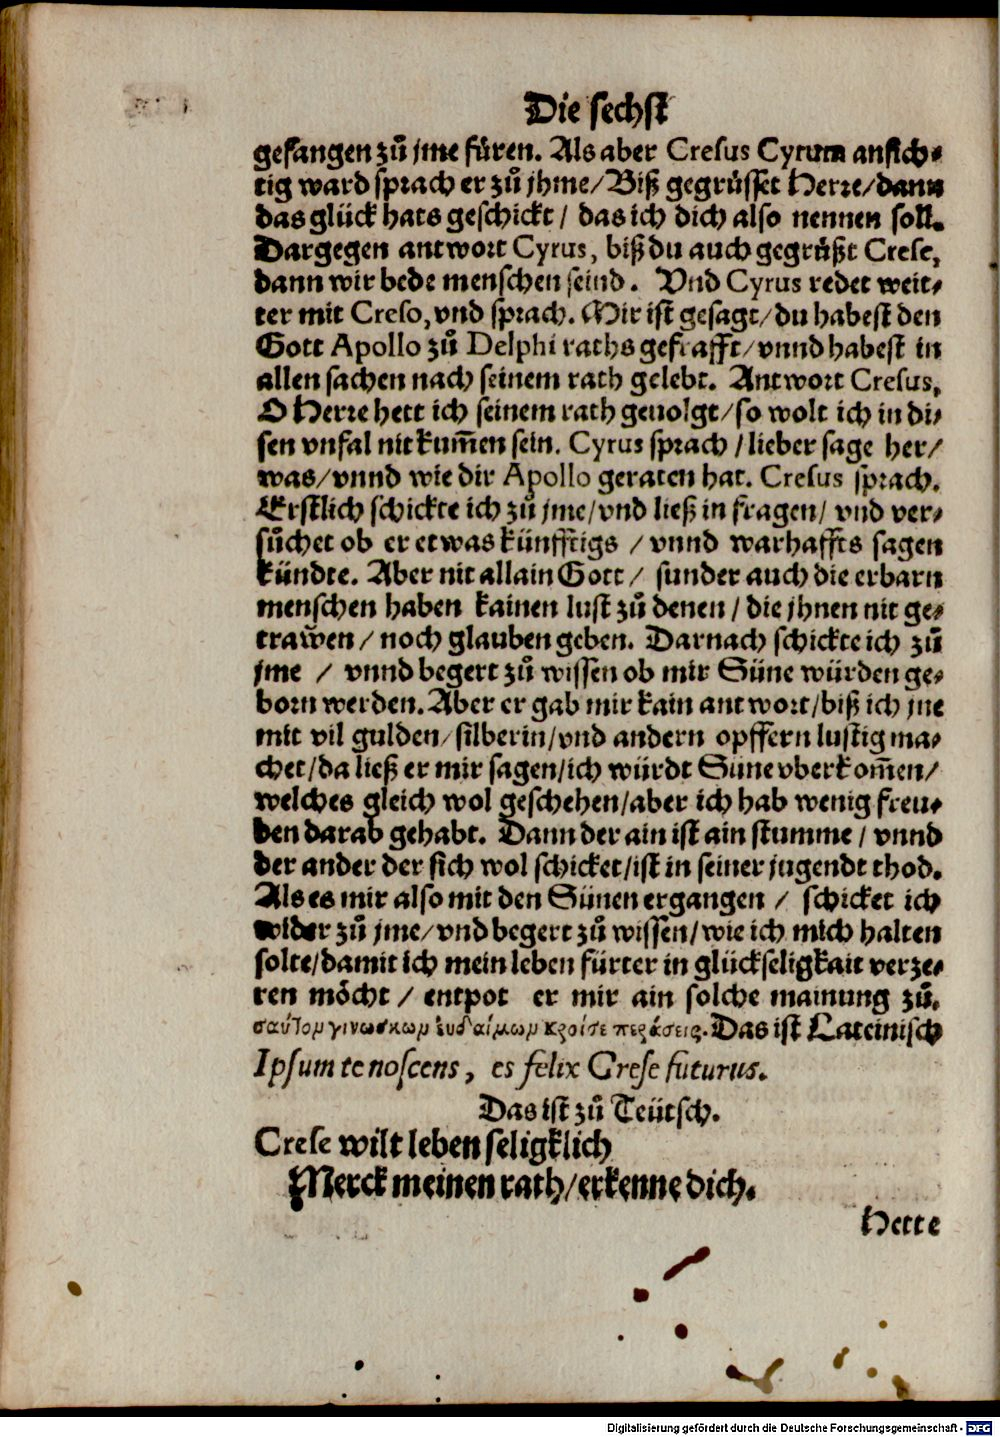 Die sechst
gefangen zů jme füren. Als aber Cresus Cyrum ansich⸗
tig ward sprach er zů jhme/Biß gegrüsset Herre/dann
das glück hats geschickt / das ich dich also nennen soll.
Dargegen antwort Cyrus, biß du auch gegrüßt Crese,
dann wir bede menschen seind. Vnd Cyrus redet weit⸗
ter mit Creso, vnd sprach. Mir ist gesagt/du habest den
Gott Apollo zů Delphi raths gefrafft/vnnd habest in
allen sachen nach seinem rath gelebt. Antwort Cresus,
O Herre hett ich seinem rath geuolgt/so wolt ich in di⸗
sen vnfal nit kum̃en sein. Cyrus sprach /lieber sage her/
was/vnnd wie dir Apollo geraten hat. Cresus sprach.
Erstlich schickte ich zů jme/vnd ließ in fragen/ vnd ver⸗
sůchet ob er etwas künfftigs / vnnd warhaffts sagen
kündte. Aber nit allain Gott / sunder auch die erbarn
menschen haben kainen lust zů denen / die jhnen nit ge⸗
traw̃en / noch glauben geben. Darnach schickte ich zů
jme / vnnd begert zů wissen ob mir Süne würden ge⸗
born werden. Aber er gab mir kain antwort/biß ich jne
mit vil gulden/silberin/vnd andern opffern lustig ma⸗
chet/da ließ er mir sagen/ich würdt Süne vberkom̃en/
welches gleich wol geschehen/aber ich hab wenig freu⸗
den darab gehabt. Dann der ain ist ain stumme / vnnd
der ander der sich wol schicket/ist in seiner jugendt thod.
Als es mir also mit den Sünen ergangen / schicket ich
wider zů jme/vnd begert zů wissen/wie ich mich halten
solte/damit ich mein leben fürter in glückseligkait verze⸗
ren möcht / entpot er mir ain solche mainung zů.
σαύτομ γινωσκωμ ἐυδαίμωμ κροίσε περάσεις. Das ist Lateinisch
Ipsum te noscens, es felix Crese futurus.
Das ist zů Teütsch.
Crese wilt leben seligklich
Merck meinen rath/erkenne dich.
Hette
Digitalisierung gefördert durch die Deutsche Forschungsgemeinschaft - DFG